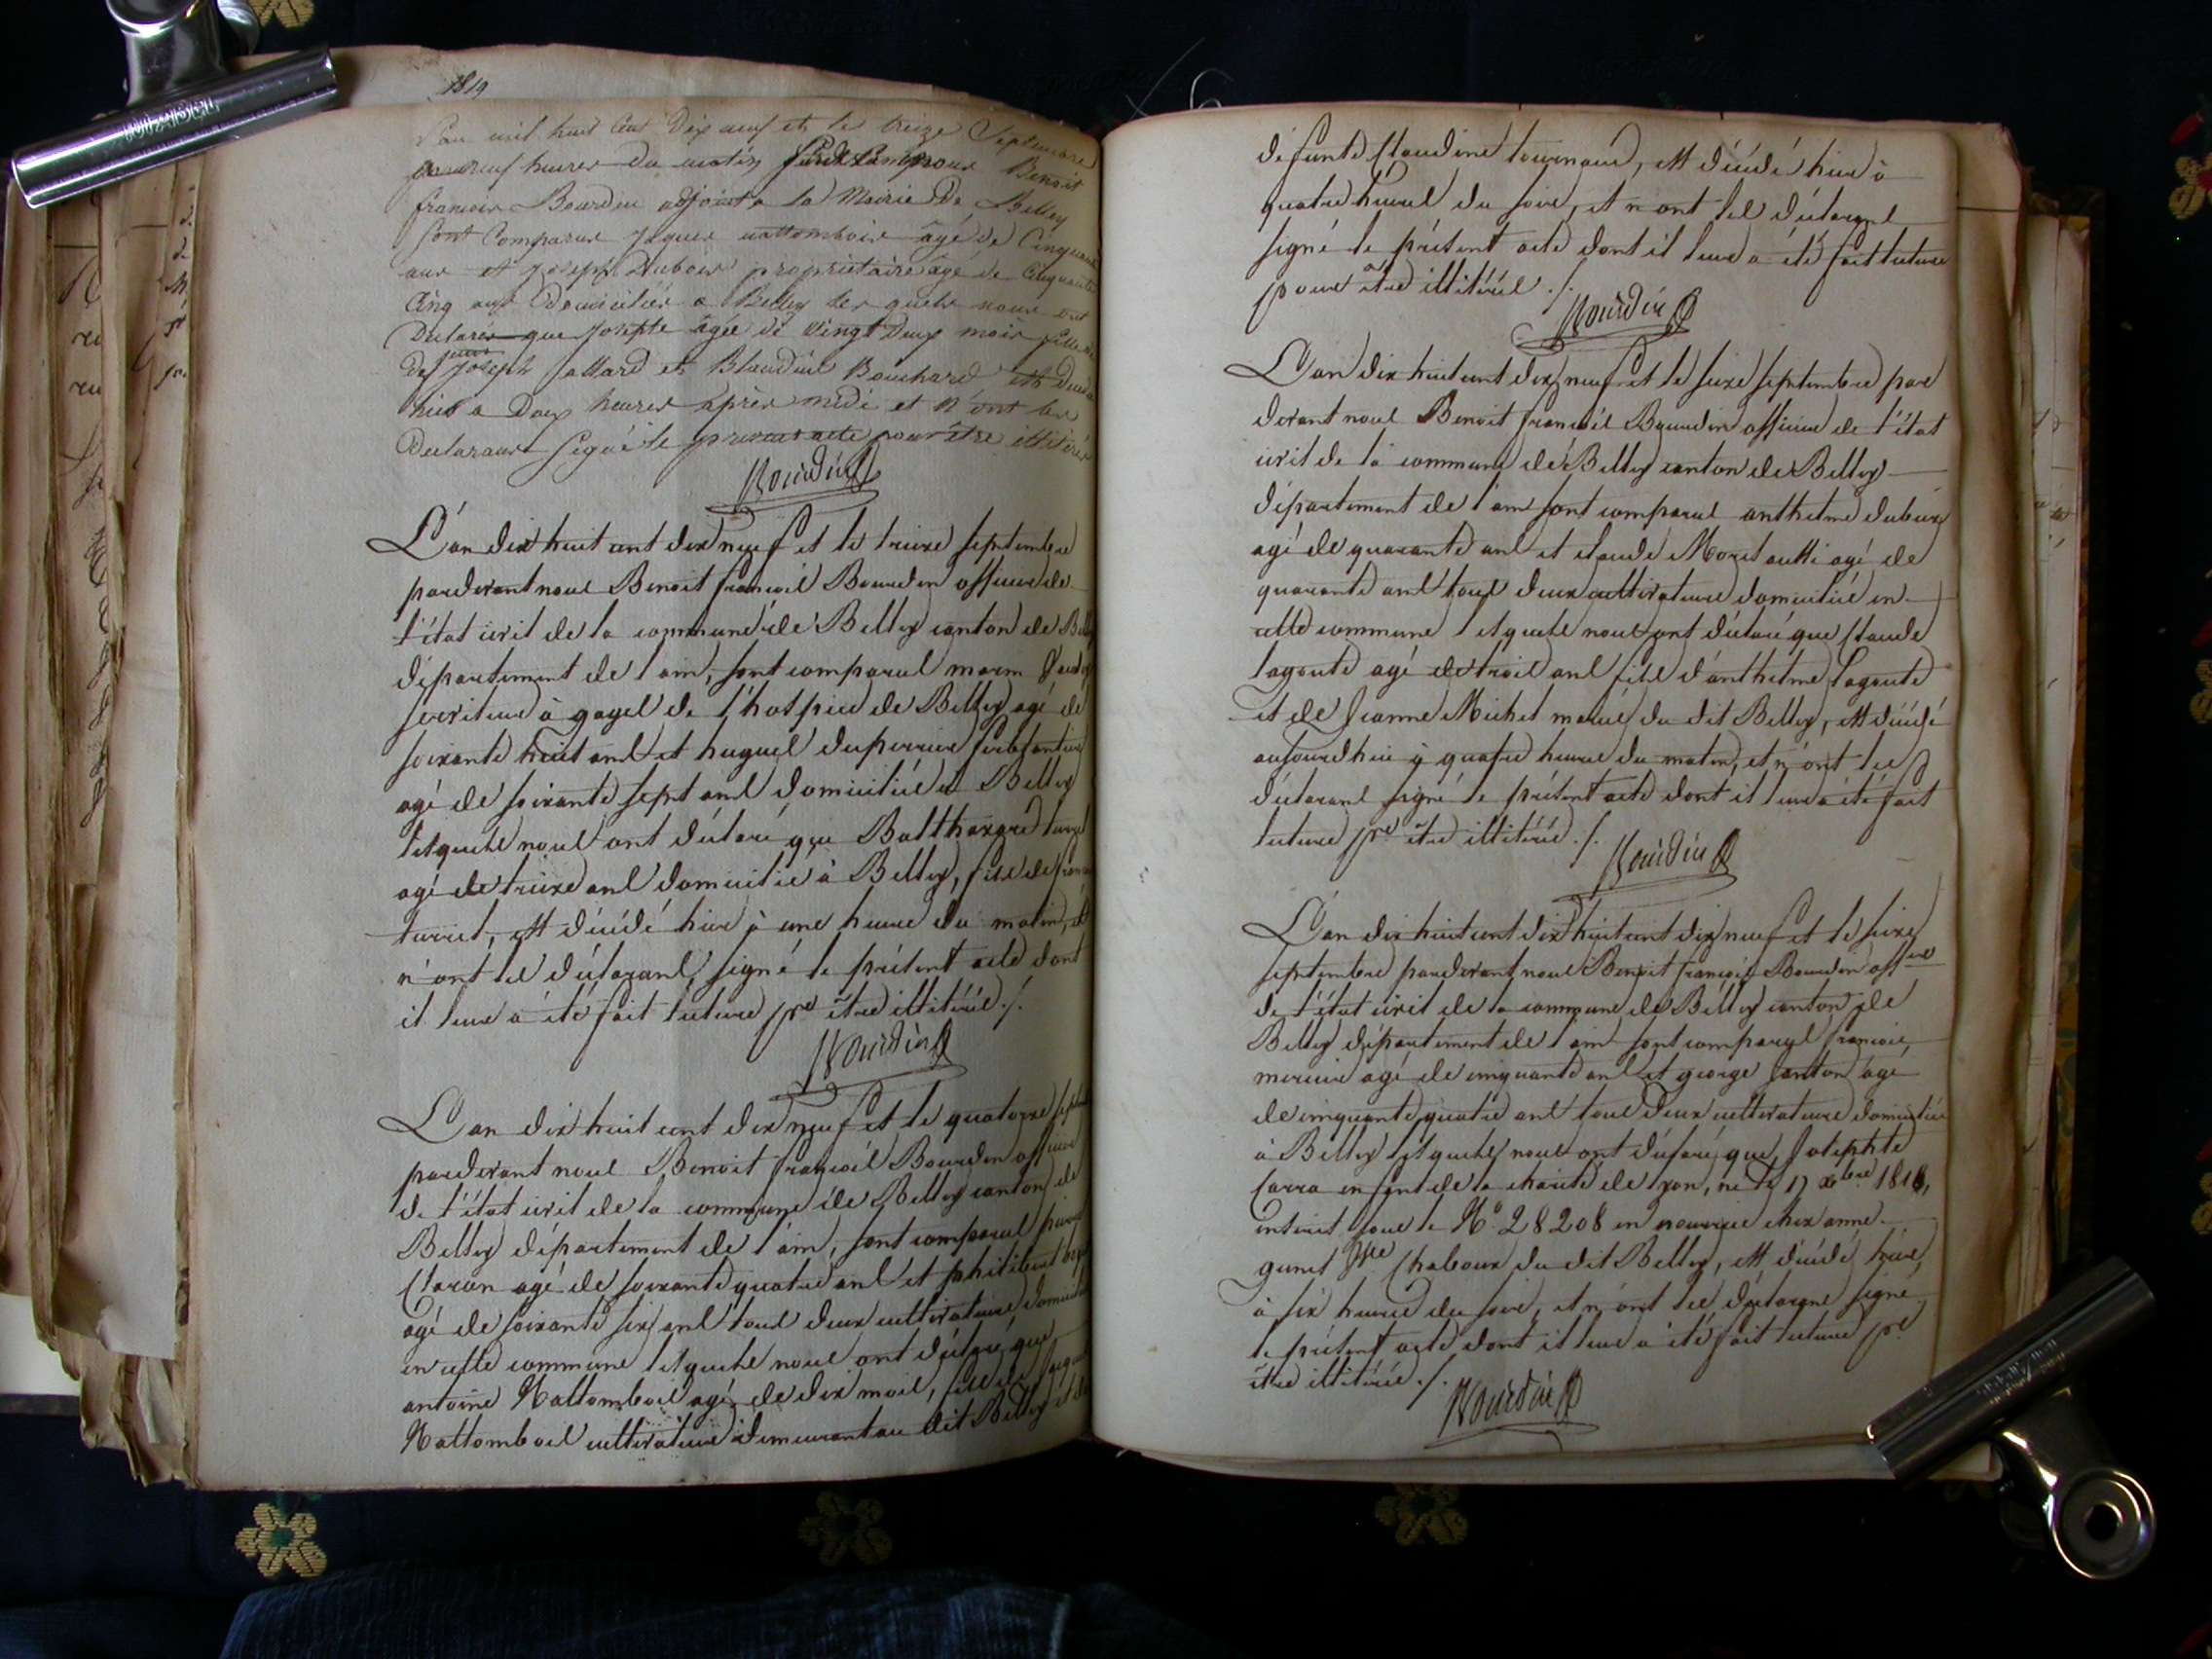 1819
L'an mil huit Cent Dix neuf et le treize Septembre
a neuf heures du matin pardevant nous Benoit
francois Bourdin adjoint a la Mairie De Belley
sont Comparus Jaques nattombois âgé de Cinquante
ans et Joseph Dubois propriétaire âgé de Cinquante
Cinq ans Domiciliés a Belley les quels nous ont
Declarés que Josephte âgée de vingt Deux mois fille de
feu
Joseph Jallard et Blandine Bouchard est Decedé
hier a Deux heures après midi et N'ont les
Declarans signé le present acte pour être illitérés
Bourdin
L'an dix huit cent dix neuf et le treize septembre
pardevant nous Benoit françois Bourdin officier de
l'état civil de la commune de Belley canton de Belley
département de l'ain, sont comparus
serviteur à gages de l'hospice de Belley agé de
soixante huit ans et hugues duperrier
agé de soixante sept ans domiciliés à Belley
lesquels nous ont déclaré que Balthazard
agé de treize ans domicilié à Belley, fils de
turret, est décédé hier à une heure du matin, et
n'ont les déclarans signé le présent acte dont
il leur a été fait lecture pr être illitérés ./.
Bourdin
L'an dix huit cent dix neuf et le quatorze septembre
pardevant nous Benoit françois Bourdin officier
de l'état civil de la commune de Belley canton de
Belley département de l'ain, sont comparus
Claron agé de soixante quatre ans et philibert
agé de soixante six ans tous deux cultivateurs domiciliés
en cette commune lesquels nous ont déclaré que
antoine Nattombois agé de dix mois, fils de Jaques
Nattombois cultivateur demeurant au dit Belley et de
défunte Claudine tournau, est décédé hier à
quatre heures du soir, et n'ont les déclarans
signé le présent acte dont il leur a été fait lecture
pour être illitérés ./.
Bourdin
L'an dix huit cent dix neuf et le seize septembre par
devant nous Benoit françois Bourdin officier de l'état
civil de la commune de Belley canton de Belley
département de l'ain sont comparus anthelme dubois
agé de quarante ans et claude Moret aussi agé de
quarante ans tous deux cultivateurs domiciliés en
cette commune lesquels nous ont déclaré que Claude
lagoute agé de trois ans fils d'anthelme lagoute
et de Jeanne Michet mariés du dit Belley, est décédé
aujourdhui à quatre heures du matin, et n'ont les
déclarans signé le présent acte dont il leur a été fait
lecture pr être illitérés ./.
Bourdin
L'an dix huit cent dix huit cent dix neuf et le seize
septembre pardevant nous Benoit françois Bourdin offier
de l'état civil de la commune de Belley canton de
Belley département de l'ain sont comparus francois
mercier agé de cinquante ans et george Janton agé
de cinquante quatre ans tous deux cultivateurs domiciliés
à Belley lesquels nous ont déclaré que Josephte
Carra enfant de la charité de lyon, né le 17 xbre 1818,
inscrit sous le No. 28208 en nourrice chez anne
gunet fme Chaboux du dit Belley, est décédé hier,
à six heures du soir, et n'ont les déclarans signé
le présent acte dont il leur a été fait lecture pr
être illitérés ./.
Bourdin